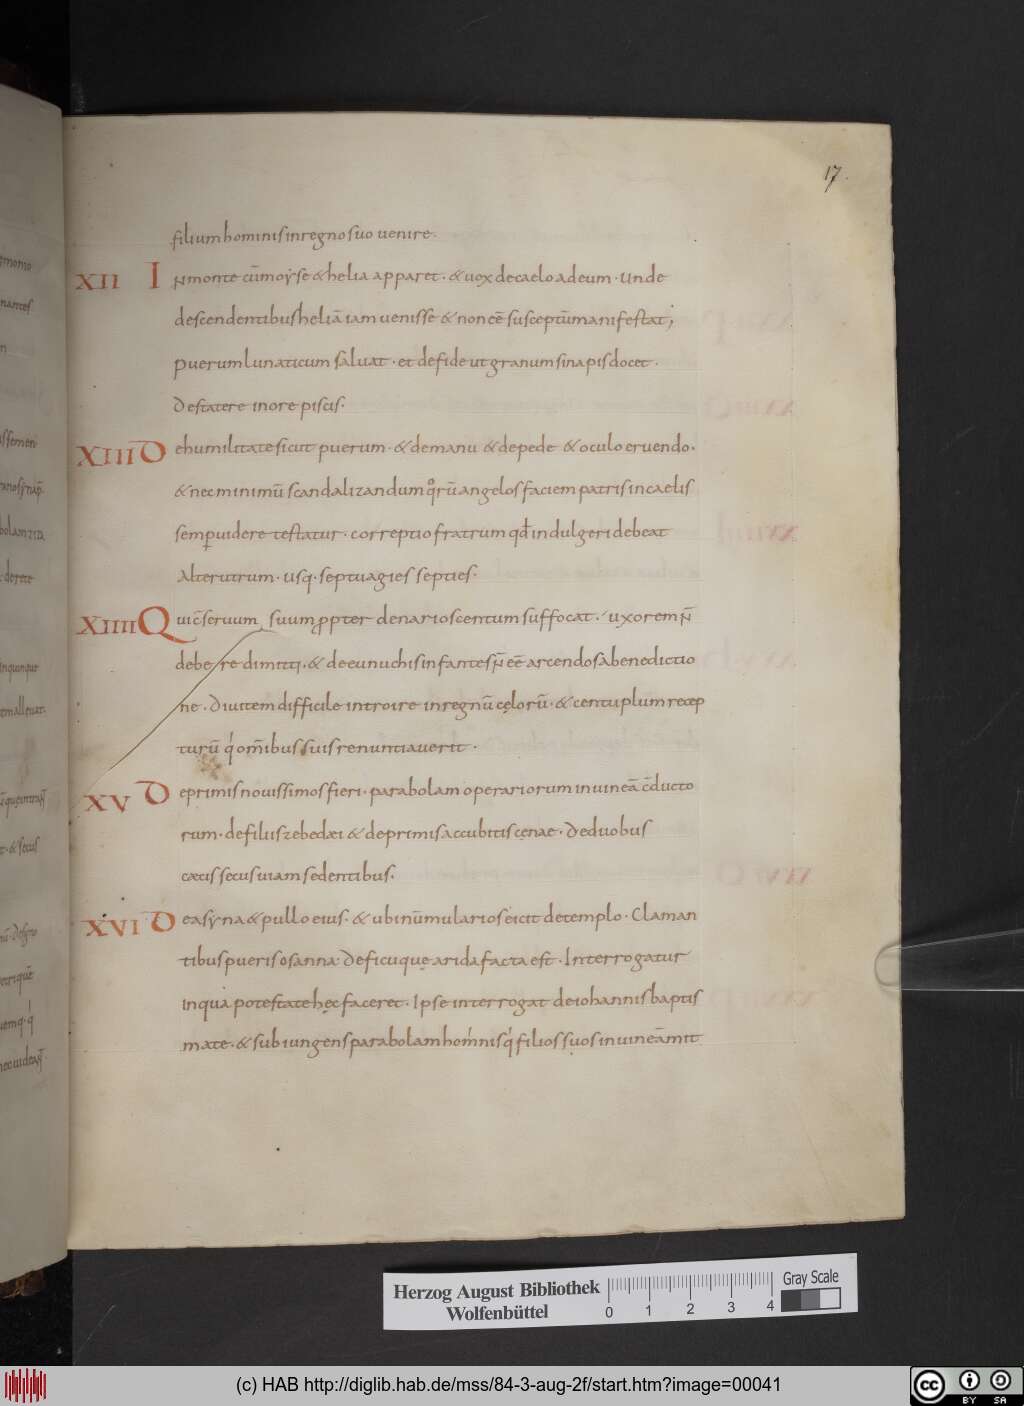 17
filium hominis in regno suo uenire.
XII In monte cū moẏse & helia apparet · & uox de caelo ad eum · Unde
descendentibus heliā iam uenisse & non eē susceptū manifestat;
puerum lunaticum saluat · et de fide ut granum sinapis docet ·
De statere in ore piscis·
XIII De humilitate sicut puerum · & de manu & de pede & oculo eruendo·
& nec minimū scandalizandum qͦrū angelos faciem patris in caelis
semꝑ uidere testatur · correptio fratrum qđ indulgeri debeat
Alterutrum · usq· septuagies septies·
XIIII Qui c̄seruum suum ꝓpter denarios centum suffocat · uxorem n̄
debere dimitti · & de eunuchis infantes n̄ eē arcendos a benedictio
ne · Diuitem difficile introire in regnū cęlorū · & centuplum recep
turū q' om̄ibus suis renuntiauerit ·
XV De primis nouissimos fieri · parabolam operariorum in uineā c̄ducto
rum · de filiis zebedæi & de primis accubitis cęnae · De duobus
cæcis secus uiam sedentibus·
XVI De asẏna & pullo eius · & ubi nūmularios eicit de templo · Claman
tibus pueris osanna· De ficu quę arida facta est · Interrogatur
in qua potestate hęc faceret · Ipse interrogat de iohannis baptis
mate · & subiungens parabolam hominis q' filios suos in uineā mit
Herzog August Bibliothek
Wolfenbüttel
0 1 2 3 4
Gray Scale
(c) HAB http://diglib.hab.de/mss/84-3-aug-2f/start.htm?image=00041
cc BY SA